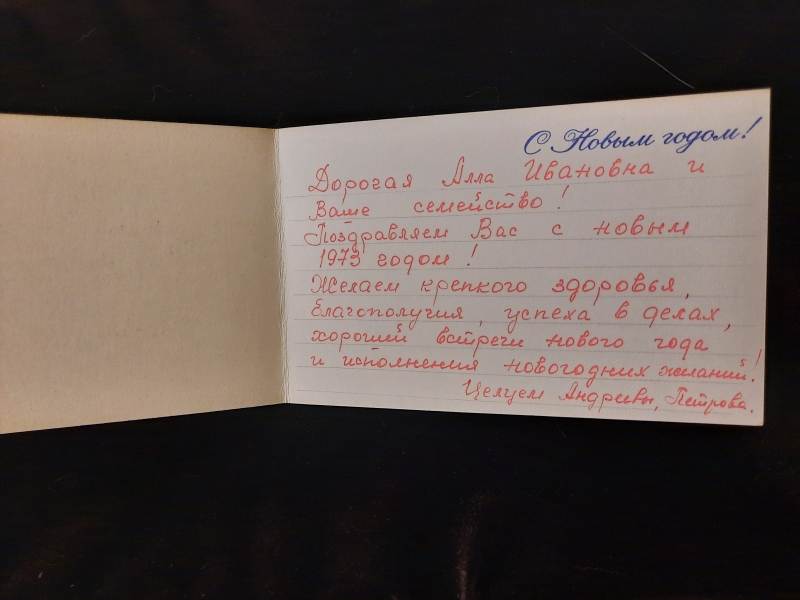 С Новым годом!
Дорогая Алла Ивановна и
Ваше семейство!
Поздравляем Вас с новым
1973 годом!
Желаем крепкого здоровья,
благополучия, успеха в делах,
хорошей встречи нового года
и исполнения новогодних желаний!
Целуем Андреевы, Петрова.